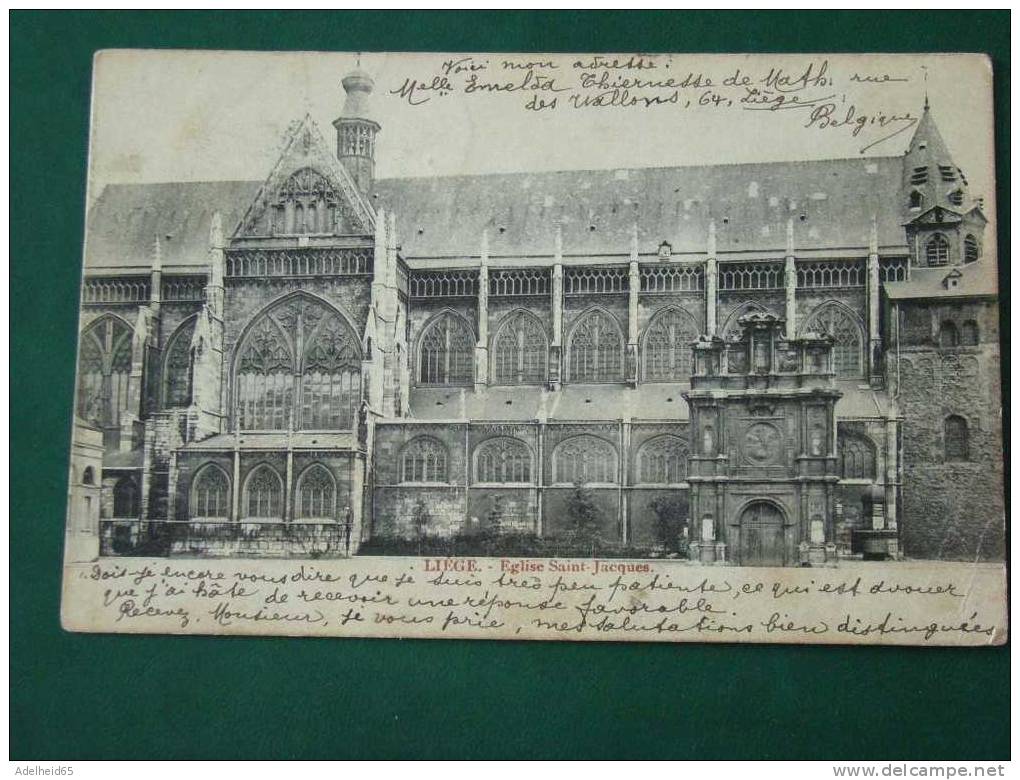 Voici mon adresse:
Melle Emelda Thiernesse de Math. rue
des Wallons, 64, Liège
Belgique
LIÉGE. - Eglise Saint-Jacques.
Dois-je encore vous dire que je suis très peu patiente, ce qui est avouer
que j'ai hâte de recevoir une réponse favorable.
Recevez, Monsieur, je vous prie, mes salutations bien distinguées
Adelheid65
www.delcampe.net